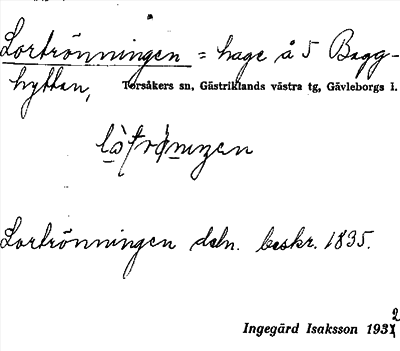 Lortrönningen = hage å 5 Bagg-
hyttan,
Torsåkers sn, Gästriklands västra tg, Gävleborgs l.
Lortrönningen deln. beskr. 1835.
Ingegärd Isaksson 1932